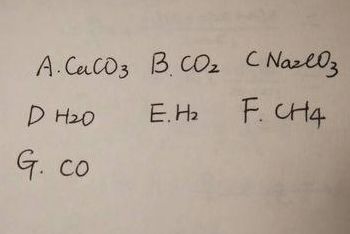 A. CaCO3 B. CO2 C Na2CO3
D H2O E. H2 F. CH4
G. CO